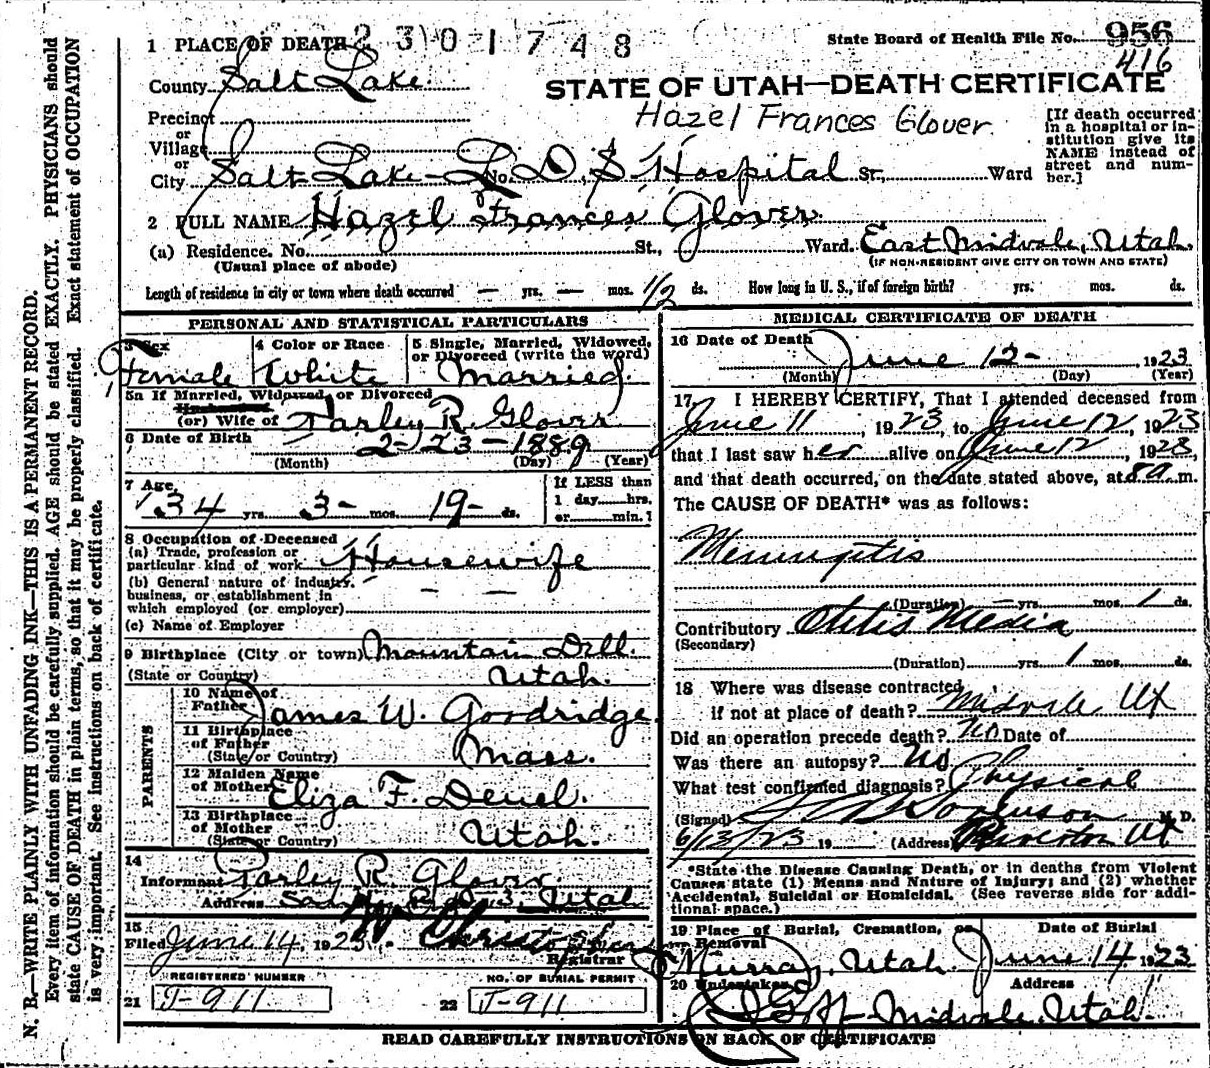 1 PLACE OF DEATH 2301748
State Board of Health File No. 956
416
County Salt Lake
STATE OF UTAH—DEATH CERTIFICATE
Precinct
or
Village
Hazel Frances Glover
[If death occurred in a hospital or institution give its NAME instead of street and number.]
or
City Salt Lake - No. L. D. S Hospital St., Ward
2 FULL NAME Hazel Frances Glover
(a) Residence. No. St., Ward. East Midvale, Utah.
(Usual place of abode) (IF NON-RESIDENT GIVE CITY OR TOWN AND STATE)
Length of residence in city or town where death occurred — yrs. — mos. 1/2 ds. How long in U. S., if of foreign birth? yrs. mos. ds.
PERSONAL AND STATISTICAL PARTICULARS
3 Sex Female
4 Color or Race White
5 Single, Married, Widowed, or Divorced (write the word) Married
5a If Married, Widowed, or Divorced
(or) Wife of Farley R. Glover
6 Date of Birth 2-23-1889
(Month) (Day) (Year)
7 Age 34 yrs. 3- mos. 19- ds.
If LESS than 1 day hrs. or min.?
8 Occupation of Deceased
(a) Trade, profession or particular kind of work Housewife
(b) General nature of industry, business, or establishment in which employed (or employer) — —
(c) Name of Employer
9 Birthplace (City or town) Mountain Dell.
(State or Country) Utah.
PARENTS
10 Name of Father James W. Goodridge
11 Birthplace of Father (State or Country) Mass.
12 Maiden Name of Mother Eliza F. Deuel.
13 Birthplace of Mother (State or Country) Utah.
14
Informant Farley R. Glover
Address Sandy R. D. 3, Utah
15
Filed June 14, 1923. Christophers
Registrar
REGISTERED NUMBER NO. OF BURIAL PERMIT
21 J-911 22 J-911
MEDICAL CERTIFICATE OF DEATH
16 Date of Death
June 12-, 1923
(Month) (Day) (Year)
17 I HEREBY CERTIFY, That I attended deceased from
June 11, 1923, to June 12, 1923
that I last saw her alive on June 12, 1923,
and that death occurred, on the date stated above, at 8 a. m.
The CAUSE OF DEATH* was as follows:
Meningitis
(Duration) — yrs. mos. 1 ds.
Contributory Otitis Media
(Secondary)
(Duration) yrs. 1 mos. ds.
18 Where was disease contracted
if not at place of death? Midvale Ut
Did an operation precede death? No Date of
Was there an autopsy? No
What test confirmed diagnosis? Physical
(Signed) Sorenson M. D.
6/13/23 19 (Address) Riverton Ut
*State the Disease Causing Death, or in deaths from Violent Causes state (1) Means and Nature of Injury; and (2) whether Accidental, Suicidal or Homicidal. (See reverse side for additional space.)
19 Place of Burial, Cremation, or Removal Date of Burial
Murray, Utah. June 14 1923
20 Undertaker Address
Goff - Midvale, Utah.
READ CAREFULLY INSTRUCTIONS ON BACK OF CERTIFICATE
N. B.—WRITE PLAINLY WITH UNFADING INK—THIS IS A PERMANENT RECORD.
Every item of information should be carefully supplied. AGE should be stated EXACTLY. PHYSICIANS should
state CAUSE OF DEATH in plain terms, so that it may be properly classified. Exact statement of OCCUPATION
is very important. See instructions on back of certificate.